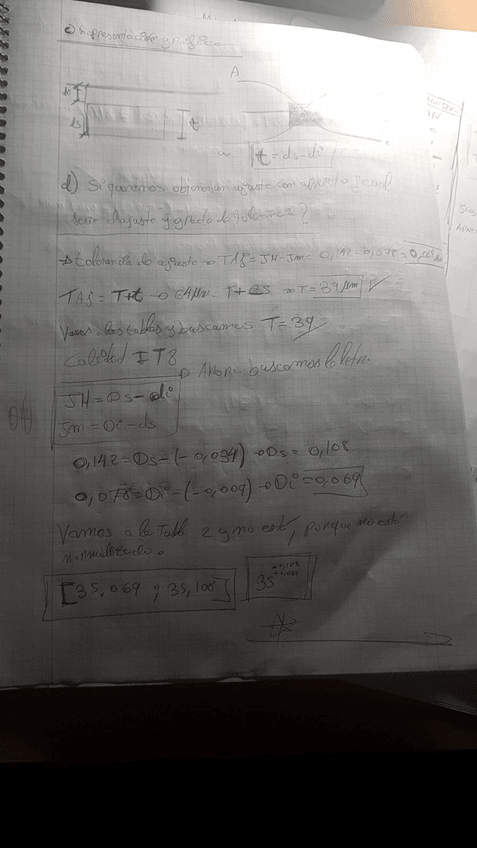 c) Representación gráfica
A
di
ds
t
t = ds - di
d) Si queremos obtener un ajuste con aprieto ¿cual
seria el ajuste y grado de tolerancia?
→ tolerancia de ajuste → TAj = JH - Jm = 0,142 - 0,078 =
TAj = T+t → 64 μm = T+25 → T = 39 μm ✓
Vamos las tablas y buscamos T = 39
Calidad IT8
→ Ahora buscamos la letra
JH = Ds - di
Jm = Di - ds
0,142 = Ds - (-0,034) → Ds = 0,108
0,078 = Di - (-0,009) → Di = 0,069
Vamos a la Tabla 2 y no está, porque no está
normalizado.
[35,069 ; 35,108]
35 +0,108 +0,069